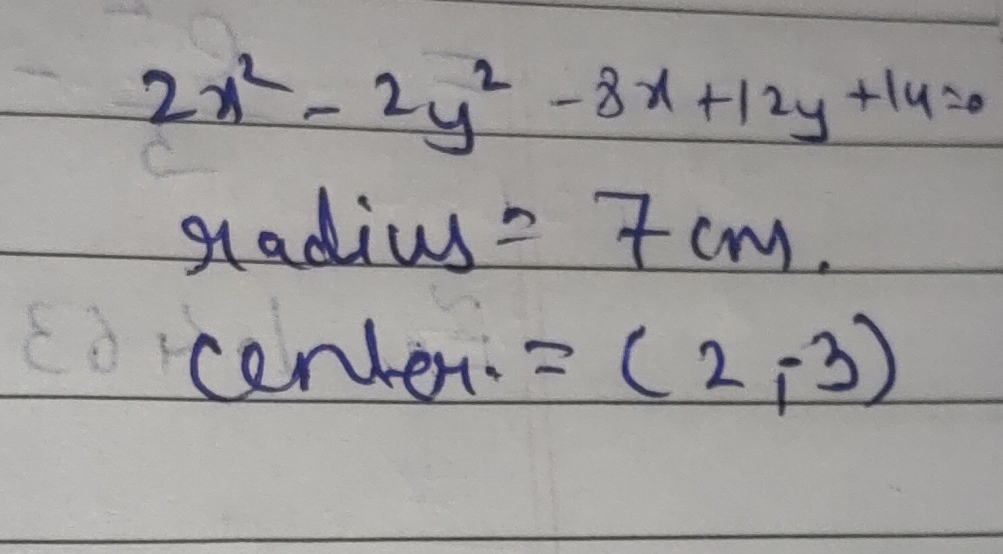 2x² - 2y² - 8x + 12y + 14 = 0
radius = 7 cm.
center. = (2, -3)